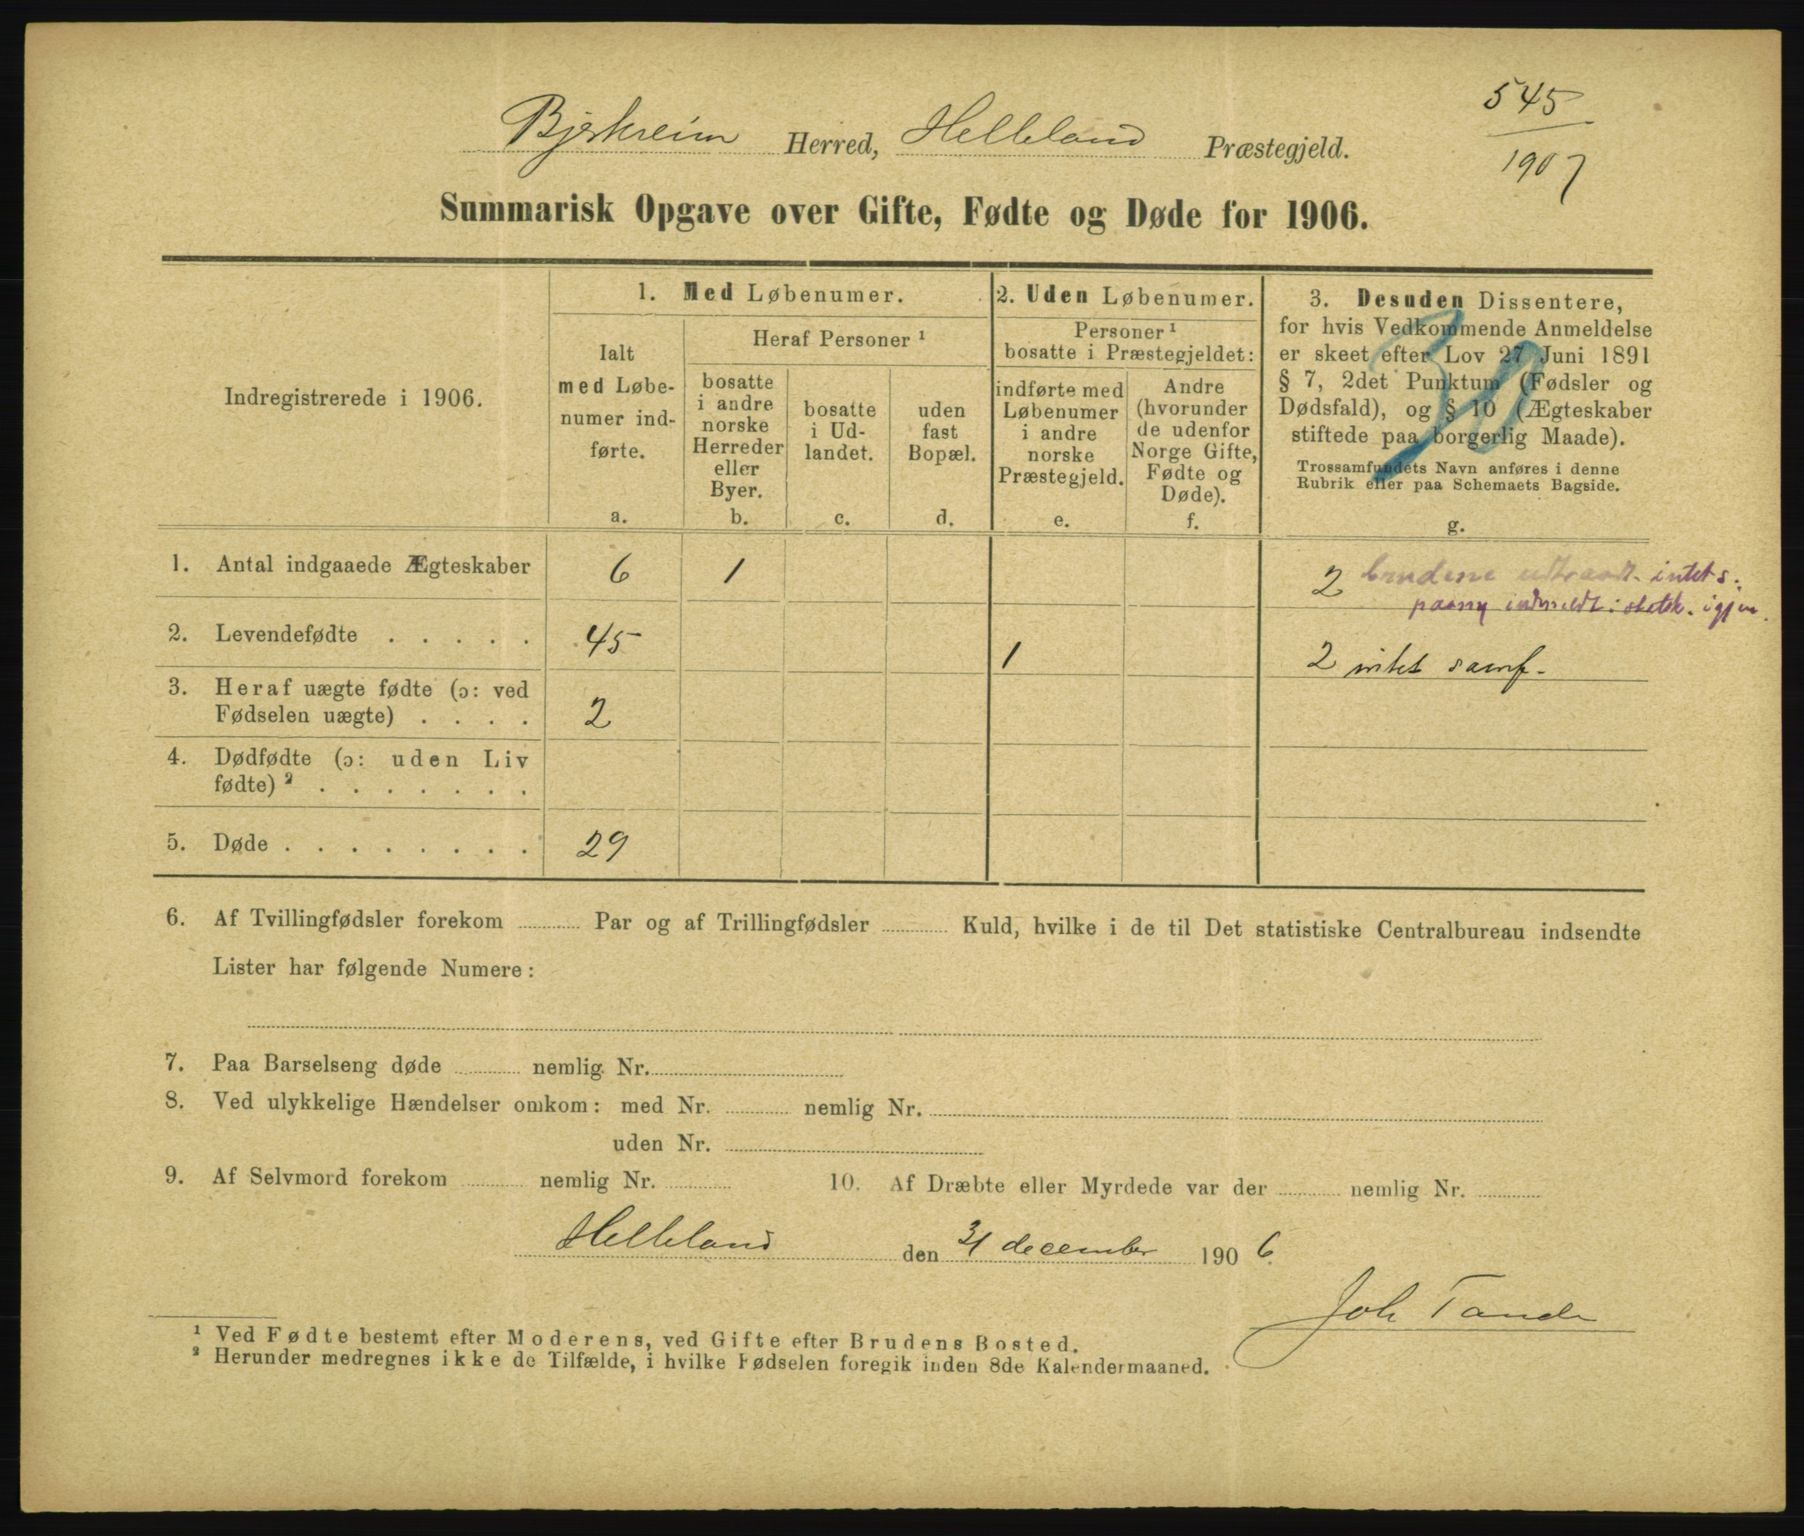 Bjerkreim Herred, Helleland Præstegjeld.
545
1907
Summarisk Opgave over Gifte, Fødte og Døde for 1906.
Indregistrerede i 1906.
1. Med Løbenumer.
Ialt
med Løbe-
numer ind-
førte.
a.
Heraf Personer ¹
bosatte
i andre
norske
Herreder
eller
Byer.
b.
bosatte
i Ud-
landet.
c.
uden
fast
Bopæl.
d.
2. Uden Løbenumer.
Personer ¹
bosatte i Præstegjeldet:
indførte med
Løbenumer
i andre
norske
Præstegjeld.
e.
Andre
(hvorunder
de udenfor
Norge Gifte,
Fødte og
Døde).
f.
3. Desuden Dissentere,
for hvis Vedkommende Anmeldelse
er skeet efter Lov 27 Juni 1891
§ 7, 2det Punktum (Fødsler og
Dødsfald), og § 10 (Ægteskaber
stiftede paa borgerlig Maade).
Trossamfundets Navn anføres i denne
Rubrik eller paa Schemaets Bagside.
g.
1. Antal indgaaede Ægteskaber 6 1 2 brudene udtraadt intet s.
igjen.
2. Levendefødte . . . . . 45 1 2 intet samf.
3. Heraf uægte fødte (ɔ: ved
Fødselen uægte) . . . . 2
4. Dødfødte (ɔ: uden Liv
fødte) ² . . . . . . .
5. Døde . . . . . . . . 29
6. Af Tvillingfødsler forekom Par og af Trillingfødsler Kuld, hvilke i de til Det statistiske Centralbureau indsendte
Lister har følgende Numere:
7. Paa Barselseng døde nemlig Nr.
8. Ved ulykkelige Hændelser omkom: med Nr. nemlig Nr.
uden Nr.
9. Af Selvmord forekom nemlig Nr. 10. Af Dræbte eller Myrdede var der nemlig Nr.
Helleland den 31 december 1906.
Joh Tande
¹ Ved Fødte bestemt efter Moderens, ved Gifte efter Brudens Bosted.
² Herunder medregnes ikke de Tilfælde, i hvilke Fødselen foregik inden 8de Kalendermaaned.